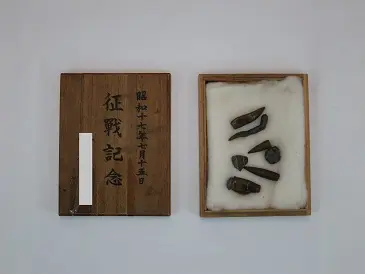 昭和十七年七月十五日
征戰記念